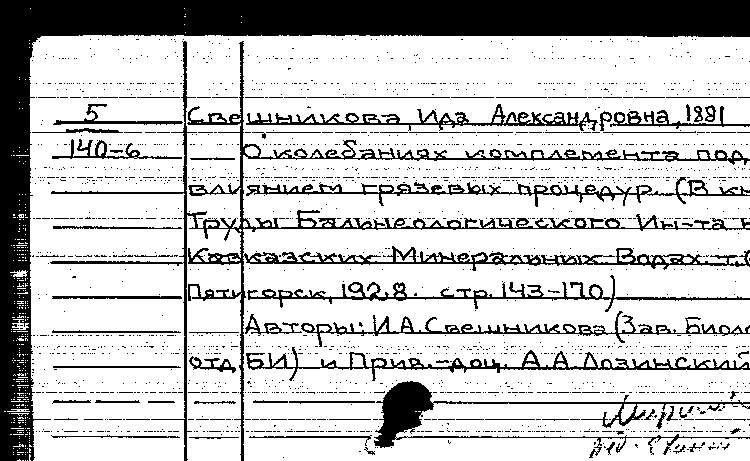 5
Свешникова, Ида Александровна, 1881
140-6
О колебаниях комплемента под
влиянием грязевых процедур. (В кн
Труды Бальнеологического Ин-та н
Кавказских Минеральных Водах. т.
Пятигорск, 1928. стр. 143-170)
Авторы: И.А. Свешникова (Зав. Биоло
отд. БИ) и Прив.-доц. А.А. Лозинский